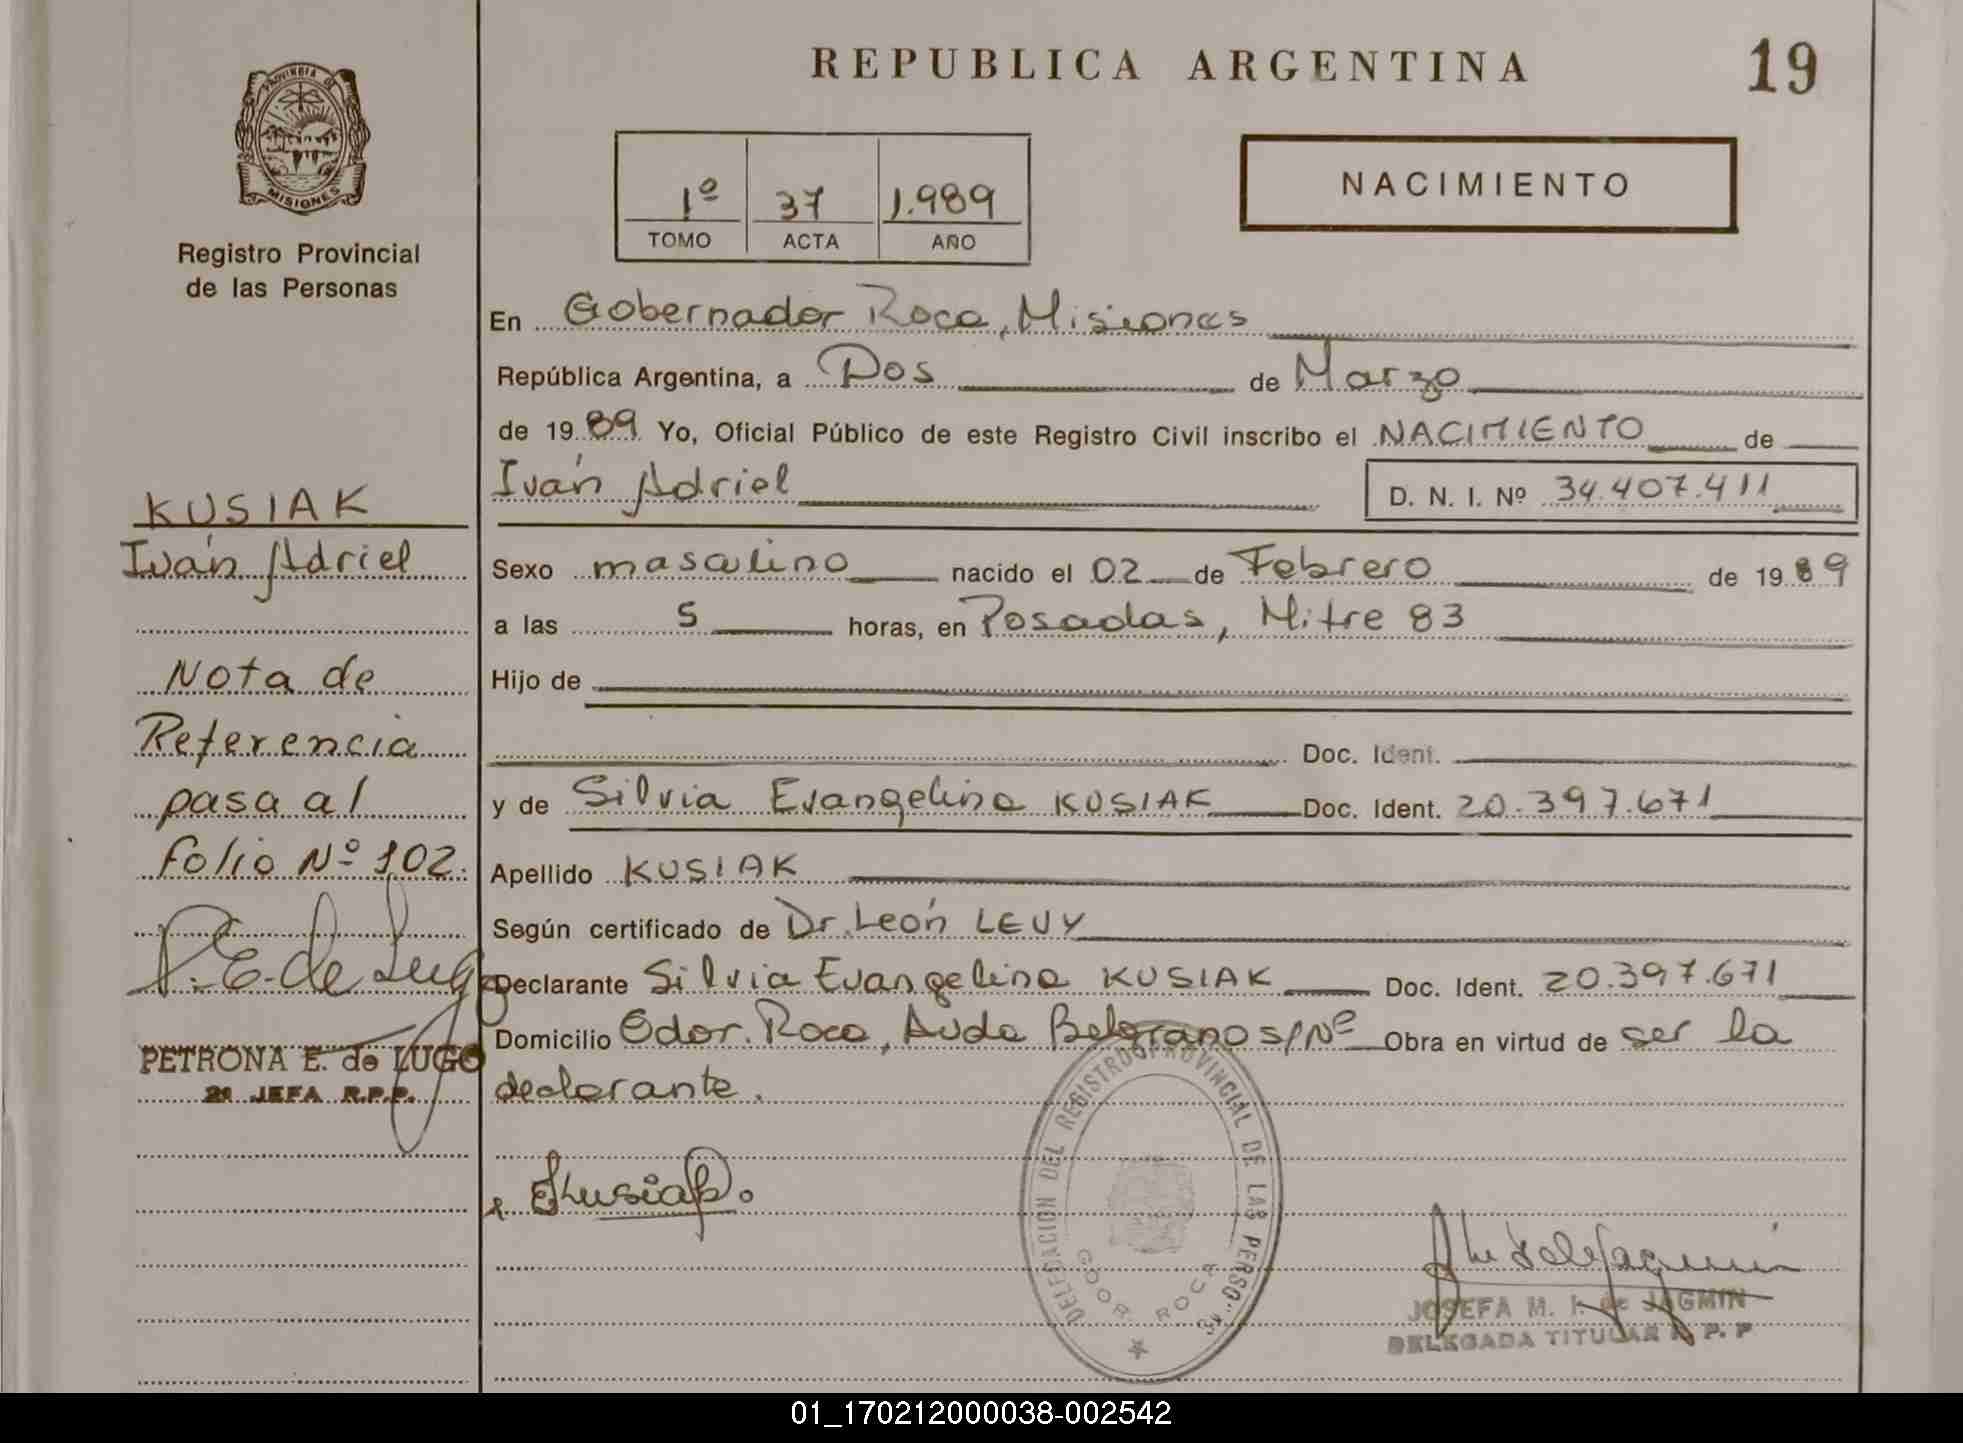 REPUBLICA ARGENTINA
19
PROVINCIA DE
MISIONES
Registro Provincial
de las Personas
1º 37 1.989
TOMO ACTA AÑO
NACIMIENTO
En Gobernador Roca, Misiones
República Argentina, a Dos de Marzo
de 1989 Yo, Oficial Público de este Registro Civil inscribo el NACIMIENTO de
Iván Adriel D. N. I. Nº 34.407.411
Sexo masculino nacido el 02 de Febrero de 1989
a las 5 horas, en Posadas, Mitre 83
Hijo de
Doc. Ident.
y de Silvia Evangelina KUSIAK Doc. Ident. 20.397.671
Apellido KUSIAK
Según certificado de Dr. León LEVY
Declarante Silvia Evangelina KUSIAK Doc. Ident. 20.397.671
Domicilio Gdor. Roca, Avda Belgrano s/Nº Obra en virtud de ser la
declarante.
KUSIAK
Iván Adriel
Nota de
Referencia
pasa al
folio Nº 102.
P. E. de Lugo
PETRONA E. de LUGO
JEFA R.P.P.
Kusiak
DELEGACION DEL REGISTRO PROVINCIAL DE LAS PERSONAS
GDOR. ROCA
JOSEFA M. de JAGMIN
DELEGADA TITULAR R. P. P
01_170212000038-002542